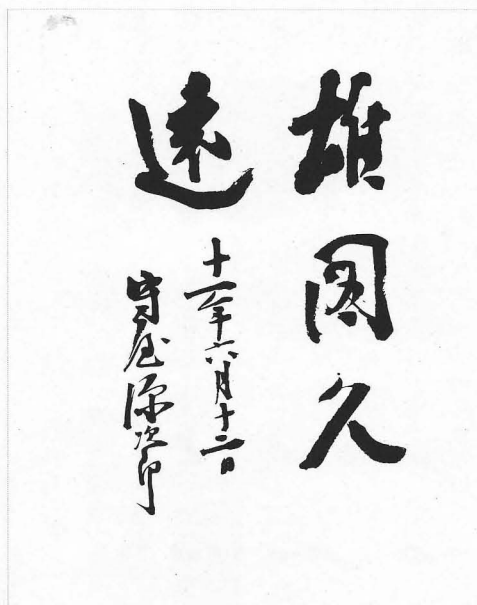 雄图久
遠
十一年六月十二日
守屋源次郎